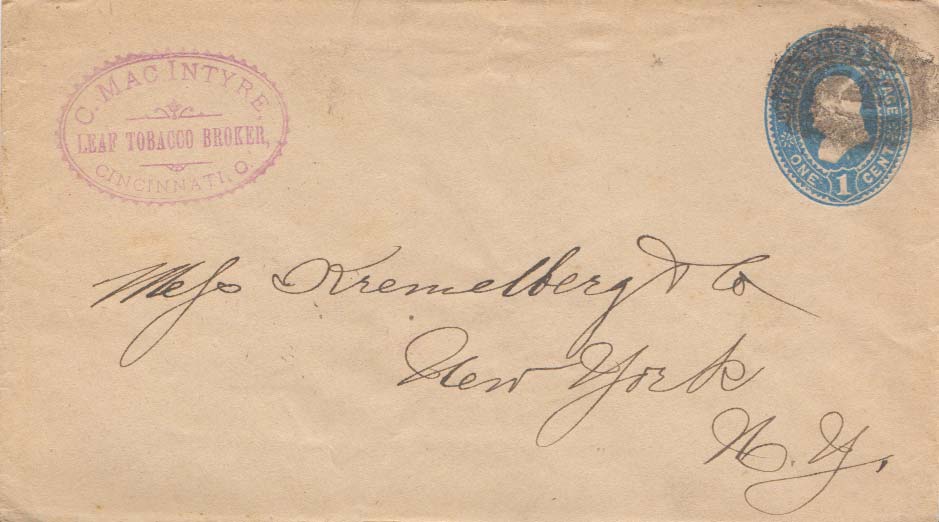 C. MAC INTYRE,
LEAF TOBACCO BROKER,
CINCINNATI, O.
UNITED STATES POSTAGE
ONE 1 CENT
Mess Kremelberg & Co
New York
N. Y.